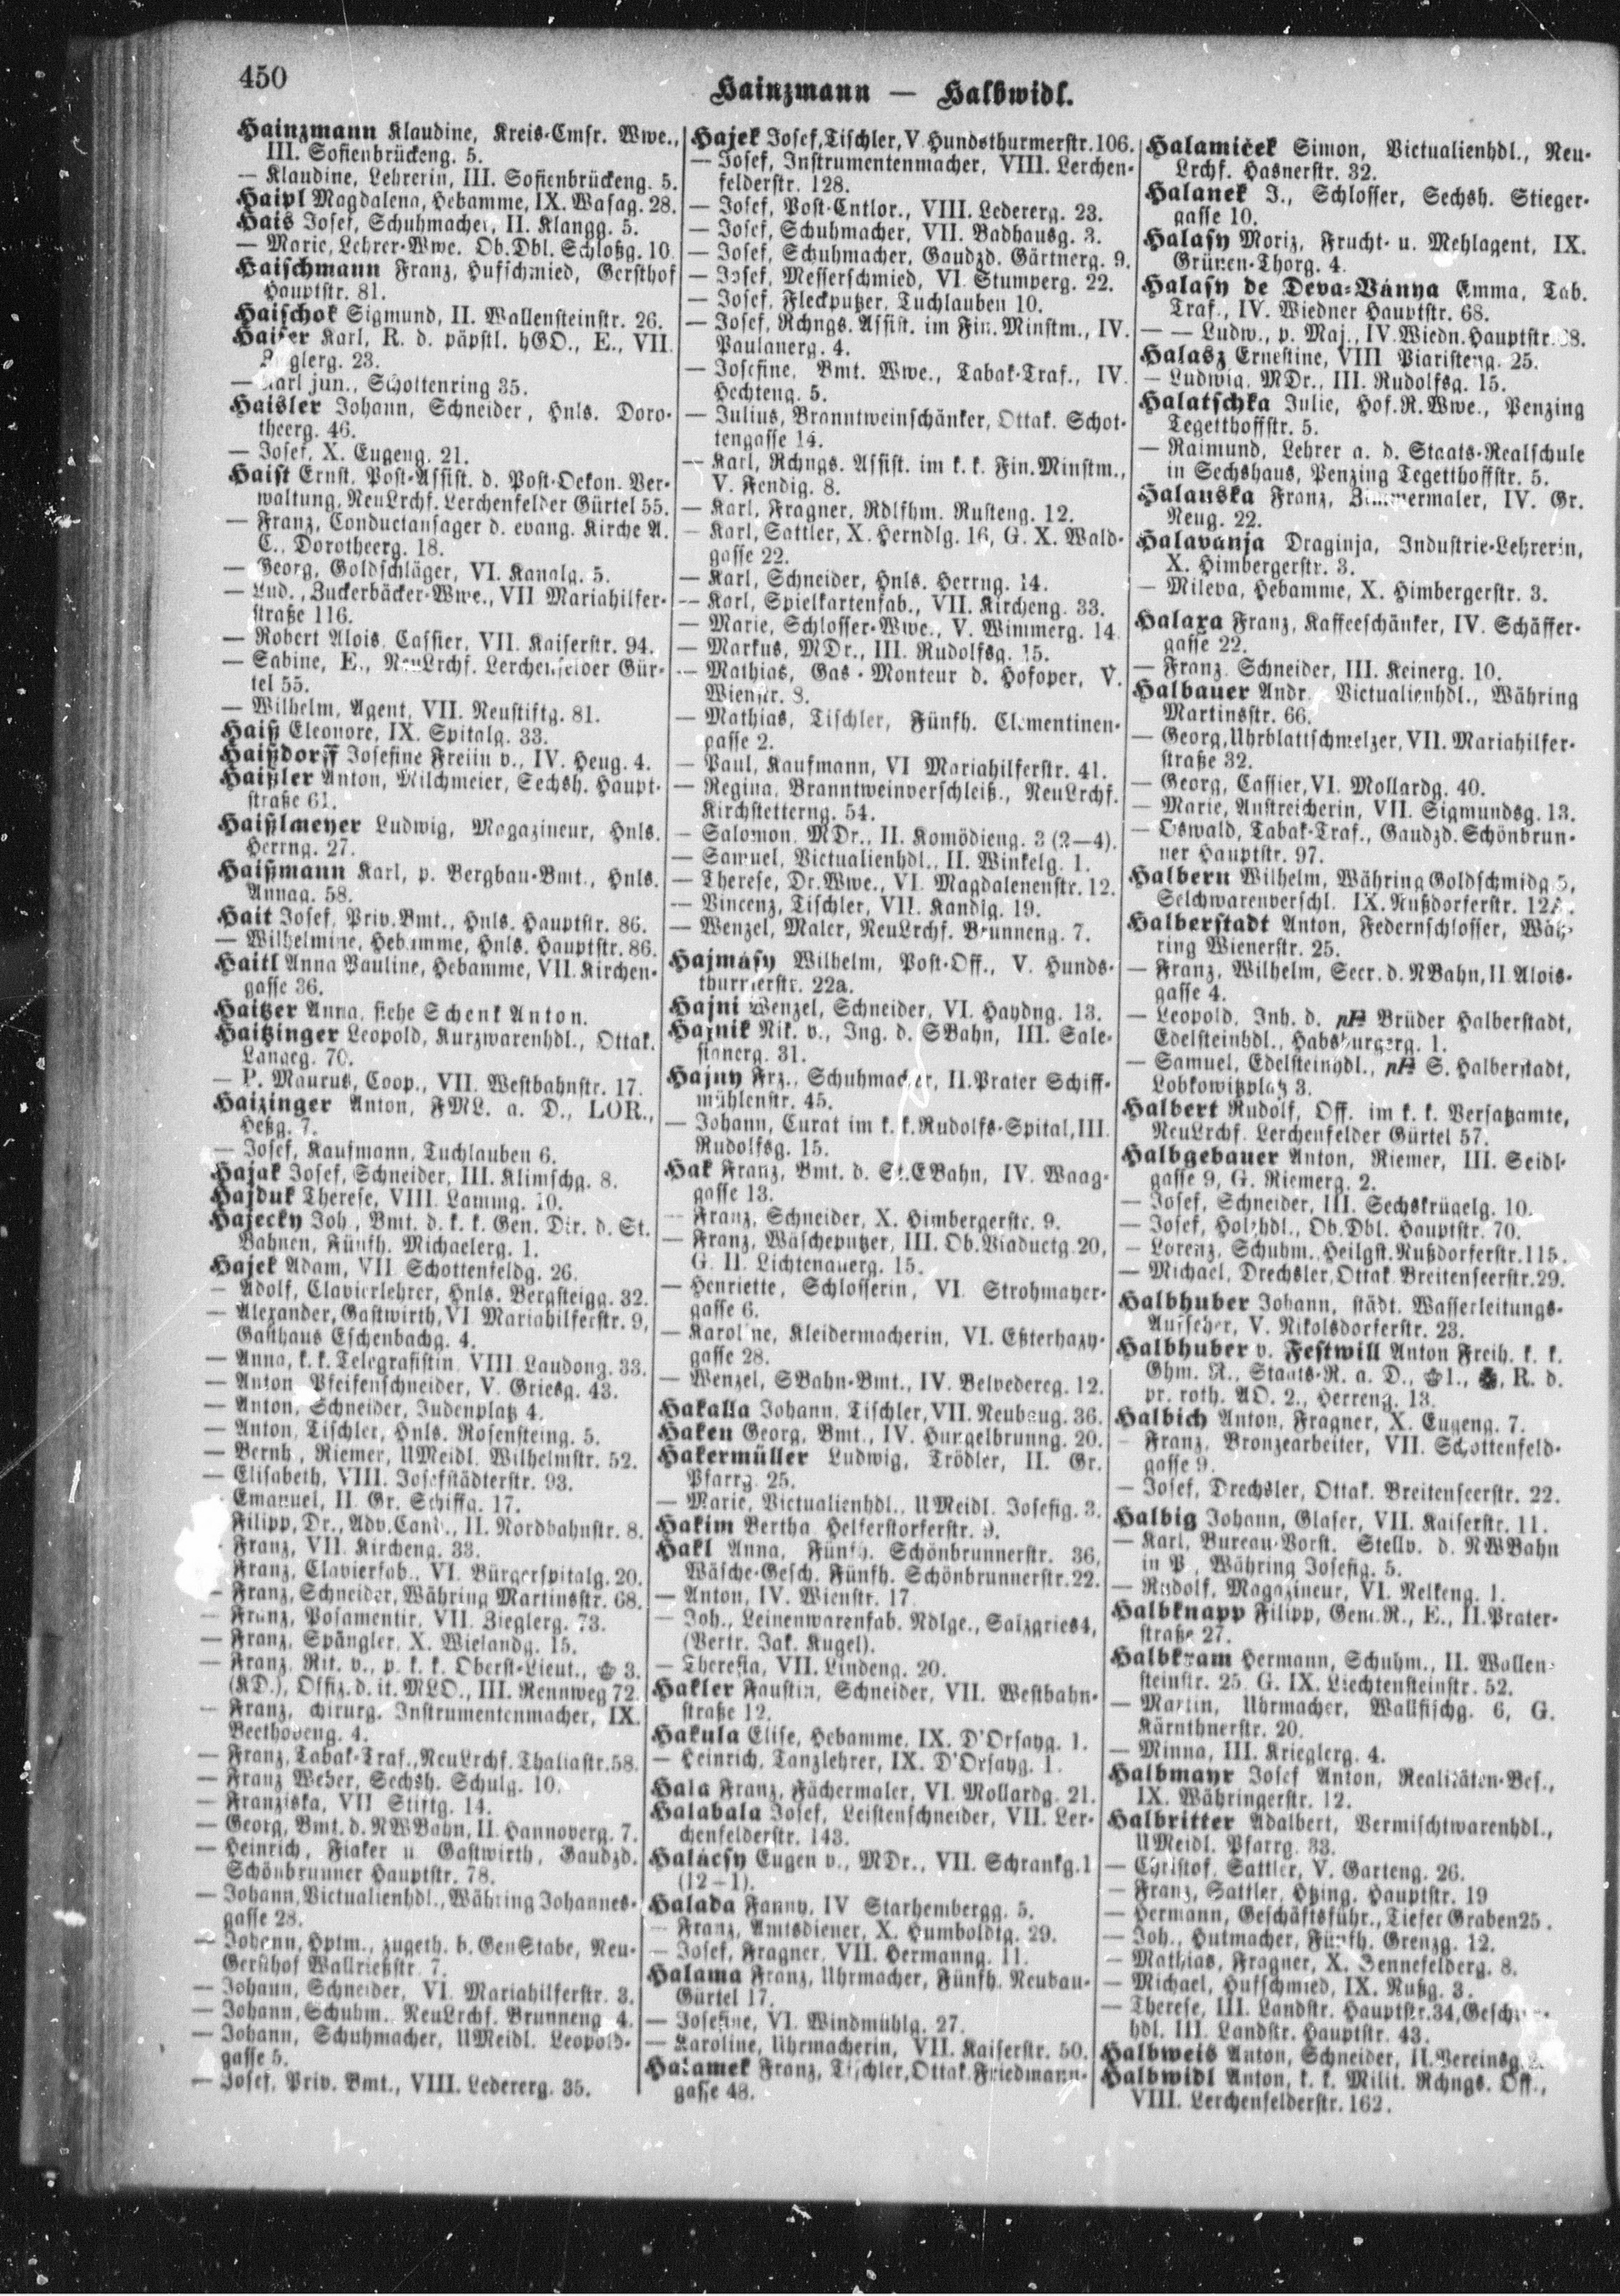 450
Hainzmann — Halbwidl.
Hainzmann Klaudine, Kreis-Cmsr. Wwe.,
III. Sofienbrückeng. 5.
— Klaudine, Lehrerin, III. Sofienbrückeng. 5.
Haipl Magdalena, Hebamme, IX. Wasag. 28.
Hais Josef, Schuhmacher, II. Klangg. 5.
— Marie, Lehrer-Wwe. Ob.Dbl. Schloßg. 10.
Haischmann Franz, Hufschmied, Gersthof
Hauptstr. 81.
Haischok Sigmund, II. Wallensteinstr. 26.
Haiser Karl, R. d. päpstl. hGO., E., VII.
Zieglerg. 23.
— Karl jun., Schottenring 35.
Haisler Johann, Schneider, Hnls. Doro-
theerg. 46.
— Josef, X. Eugeng. 21.
Haist Ernst, Post-Assist. d. Post-Oekon. Ver-
waltung, NeuLrchf. Lerchenfelder Gürtel 55.
— Franz, Conductansager d. evang. Kirche A.
C., Dorotheerg. 18.
— Georg, Goldschläger, VI. Kanalg. 5.
— Lud., Zuckerbäcker-Wwe., VII Mariahilfer-
straße 116.
— Robert Alois, Cassier, VII. Kaiserstr. 94.
— Sabine, E., NeuLrchf. Lerchenfelder Gür-
tel 55.
— Wilhelm, Agent, VII. Neustiftg. 81.
Haiß Eleonore, IX. Spitalg. 33.
Haißdorff Josefine Freiin v., IV. Heug. 4.
Haißler Anton, Milchmeier, Sechsh. Haupt-
straße 61.
Haißlmeyer Ludwig, Magazineur, Hnls.
Herrng. 27.
Haißmann Karl, p. Bergbau-Bmt., Hnls.
Annag. 58.
Hait Josef, Priv.Bmt., Hnls. Hauptstr. 86.
— Wilhelmine, Hebamme, Hnls. Hauptstr. 86.
Haitl Anna Pauline, Hebamme, VII. Kirchen-
gasse 36.
Haitzer Anna, siehe Schenk Anton.
Haitzinger Leopold, Kurzwarenhdl., Ottak.
Langeg. 70.
— P. Maurus, Coop., VII. Westbahnstr. 17.
Haizinger Anton, FML. a. D., LOR.,
Heßg. 7.
— Josef, Kaufmann, Tuchlauben 6.
Hajak Josef, Schneider, III. Klimschg. 8.
Hajduk Therese, VIII. Lammg. 10.
Hajecky Joh., Bmt. d. k. k. Gen. Dir. d. St.
Bahnen, Fünfh. Michaelerg. 1.
Hajek Adam, VII. Schottenfeldg. 26.
— Adolf, Clavierlehrer, Hnls. Bergsteigg. 32.
— Alexander, Gastwirth, VI Mariahilferstr. 9,
Gasthaus Eschenbachg. 4.
— Anna, k. k. Telegrafistin, VIII. Laudong. 33.
— Anton, Pfeifenschneider, V. Griesg. 43.
— Anton, Schneider, Judenplatz 4.
— Anton, Tischler, Hnls. Rosensteing. 5.
— Bernh., Riemer, UMeidl. Wilhelmstr. 52.
— Elisabeth, VIII. Josefstädterstr. 93.
Emanuel, II. Gr. Schiffg. 17.
Filipp, Dr., Adv.Cand., II. Nordbahnstr. 8.
Franz, VII. Kircheng. 33.
Franz, Clavierfab., VI. Bürgerspitalg. 20.
— Franz, Schneider, Währing Martinsstr. 68.
— Franz, Posamentir, VII. Zieglerg. 73.
— Franz, Spängler, X. Wielandg. 15.
— Franz, Rit. v., p. k. k. Oberst-Lieut., 3.
(KD.), Offiz. d. it. MLO., III. Rennweg 72.
— Franz, chirurg. Instrumentenmacher, IX.
Beethoveng. 4.
— Franz, Tabak-Traf., NeuLrchf. Thaliastr. 58.
— Franz Weber, Sechsh. Schulg. 10.
— Franziska, VII Stiftg. 14.
— Georg, Bmt. d. NWBahn, II. Hannoverg. 7.
— Heinrich, Fiaker u. Gastwirth, Gaudzd.
Schönbrunner Hauptstr. 78.
— Johann, Victualienhdl., Währing Johannes-
gasse 28.
— Johann, Hptm., zugeth. b. GenStabe, Neu-
Gersthof Wallrießstr. 7.
— Johann, Schneider, VI. Mariahilferstr. 3.
— Johann, Schuhm. NeuLrchf. Brunneng. 4.
— Johann, Schuhmacher, UMeidl. Leopold-
gasse 5.
— Josef, Priv. Bmt., VIII. Ledererg. 35.
Hajek Josef, Tischler, V. Hundsthurmerstr. 106.
— Josef, Instrumentenmacher, VIII. Lerchen-
felderstr. 128.
— Josef, Post-Cntlor., VIII. Ledererg. 23.
— Josef, Schuhmacher, VII. Badhausg. 3.
— Josef, Schuhmacher, Gaudzd. Gärtnerg. 9.
— Josef, Messerschmied, VI. Stumperg. 22.
— Josef, Fleckputzer, Tuchlauben 10.
— Josef, Rchngs. Assist. im Fin. Minstm., IV.
Paulanerg. 4.
— Josefine, Bmt. Wwe., Tabak-Traf., IV.
Hechteng. 5.
— Julius, Branntweinschänker, Ottak. Schot-
tengasse 14.
— Karl, Rchngs. Assist. im k. k. Fin. Minstm.,
V. Fendig. 8.
— Karl, Fragner, Rdlfhm. Rusteng. 12.
— Karl, Sattler, X. Herndlg. 16, G. X. Wald-
gasse 22.
— Karl, Schneider, Hnls. Herrng. 14.
— Karl, Spielkartenfab., VII. Kircheng. 33.
— Marie, Schlosser-Wwe., V. Wimmerg. 14.
— Markus, MDr., III. Rudolfsg. 15.
— Mathias, Gas-Monteur d. Hofoper, V.
Wienstr. 8.
— Mathias, Tischler, Fünfh. Clementinen-
gasse 2.
— Paul, Kaufmann, VI Mariahilferstr. 41.
— Regina, Branntweinverschleiß., NeuLrchf.
Kirchstetterng. 54.
— Salomon, MDr., II. Komödieng. 3 (2—4).
— Samuel, Victualienhdl., II. Winkelg. 1.
— Therese, Dr. Wwe., VI. Magdalenenstr. 12.
— Vincenz, Tischler, VII. Kandlg. 19.
— Wenzel, Maler, NeuLrchf. Brunneng. 7.
Hajmásy Wilhelm, Post-Off., V. Hunds-
thurmerstr. 22a.
Hajni Wenzel, Schneider, VI. Haydng. 13.
Hajnik Nik. v., Ing. d. SBahn, III. Sale-
sianerg. 31.
Hajny Frz., Schuhmacher, II. Prater Schiff-
mühlenstr. 45.
— Johann, Curat im k. k. Rudolfs-Spital, III.
Rudolfsg. 15.
Hak Franz, Bmt. d. St.EBahn, IV. Waag-
gasse 13.
— Franz, Schneider, X. Himbergerstr. 9.
— Franz, Wäscheputzer, III. Ob. Viaductg. 20,
G. II. Lichtenauerg. 15.
— Henriette, Schlosserin, VI. Strohmayer-
gasse 6.
— Karoline, Kleidermacherin, VI. Eßterhazy-
gasse 28.
— Wenzel, SBahn-Bmt., IV. Belvedereg. 12.
Hakalla Johann, Tischler, VII. Neubaug. 36.
Haken Georg, Bmt., IV. Hungelbrunng. 20.
Hakermüller Ludwig, Trödler, II. Gr.
Pfarrg. 25.
— Marie, Victualienhdl., UMeidl. Josefig. 3.
Hakim Bertha, Helferstorferstr. 9.
Hakl Anna, Fünfh. Schönbrunnerstr. 36,
Wäsche-Gesch. Fünfh. Schönbrunnerstr. 22.
— Anton, IV. Wienstr. 17.
— Joh., Leinenwarenfab. Ndlge., Salzgries 4,
(Vertr. Jak. Kugel).
— Theresia, VII. Lindeng. 20.
Hakler Faustin, Schneider, VII. Westbahn-
straße 12.
Hakula Elise, Hebamme, IX. D'Orsayg. 1.
— Heinrich, Tanzlehrer, IX. D'Orsayg. 1.
Hala Franz, Fächermaler, VI. Mollardg. 21.
Halabala Josef, Leistenschneider, VII. Ler-
chenfelderstr. 143.
Halácsy Eugen v., MDr., VII. Schrankg. 1
(12—1).
Halada Fanny, IV Starhembergg. 5.
— Franz, Amtsdiener, X. Humboldtg. 29.
— Josef, Fragner, VII. Hermanng. 11.
Halama Franz, Uhrmacher, Fünfh. Neubau-
Gürtel 17.
— Josefine, VI. Windmühlg. 27.
— Karoline, Uhrmacherin, VII. Kaiserstr. 50.
Halamek Franz, Tischler, Ottak. Friedmann-
gasse 48.
Halamiček Simon, Victualienhdl., Neu-
Lrchf. Hasnerstr. 32.
Halanek J., Schlosser, Sechsh. Stieger-
gasse 10.
Halasy Moriz, Frucht- u. Mehlagent, IX.
Grünen-Thorg. 4.
Halasy de Deva-Ványa Emma, Tab.
Traf., IV. Wiedner Hauptstr. 68.
— — Ludw., p. Maj., IV. Wiedn. Hauptstr. 68.
Halasz Ernestine, VIII Piaristeng. 25.
— Ludwig, MDr., III. Rudolfsg. 15.
Halatschka Julie, Hof.R. Wwe., Penzing
Tegetthoffstr. 5.
— Raimund, Lehrer a. d. Staats-Realschule
in Sechshaus, Penzing Tegetthoffstr. 5.
Halauska Franz, Zimmermaler, IV. Gr.
Neug. 22.
Halavanja Draginja, Industrie-Lehrerin,
X. Himbergerstr. 3.
— Mileva, Hebamme, X. Himbergerstr. 3.
Halaxa Franz, Kaffeeschänker, IV. Schäffer-
gasse 22.
— Franz, Schneider, III. Keinerg. 10.
Halbauer Andr., Victualienhdl., Währing
Martinsstr. 66.
— Georg, Uhrblattschmelzer, VII. Mariahilfer-
straße 32.
— Georg, Cassier, VI. Mollardg. 40.
— Marie, Anstreicherin, VII. Sigmundsg. 13.
— Oswald, Tabak-Traf., Gaudzd. Schönbrun-
ner Hauptstr. 97.
Halbern Wilhelm, Währing Goldschmidg 5,
Selchwarenverschl. IX. Nußdorferstr. 12A.
Halberstadt Anton, Federnschlosser, Wäh-
ring Wienerstr. 25.
— Franz, Wilhelm, Secr. d. NBahn, II Alois-
gasse 4.
— Leopold, Inh. d. Brüder Halberstadt,
Edelsteinhdl., Habsburgerg. 1.
— Samuel, Edelsteinhdl., S. Halberstadt,
Lobkowitzplatz 3.
Halbert Rudolf, Off. im k. k. Versatzamte,
NeuLrchf. Lerchenfelder Gürtel 57.
Halbgebauer Anton, Riemer, III. Seidl-
gasse 9, G. Riemerg. 2.
— Josef, Schneider, III. Sechskrügelg. 10.
— Josef, Holzhdl., Ob.Dbl. Hauptstr. 70.
— Lorenz, Schuhm. Heilgst. Nußdorferstr. 115.
— Michael, Drechsler, Ottak. Breitenseerstr. 29.
Halbhuber Johann, städt. Wasserleitungs-
Aufseher, V. Nikolsdorferstr. 23.
Halbhuber v. Festwill Anton Freih. k. k.
Ghm. R., Staats-R. a. D., 1., R. d.
pr. roth. AO. 2., Herreng. 13.
Halbich Anton, Fragner, X. Eugeng. 7.
— Franz, Bronzearbeiter, VII. Schottenfeld-
gasse 9.
— Josef, Drechsler, Ottak. Breitenseerstr. 22.
Halbig Johann, Glaser, VII. Kaiserstr. 11.
— Karl, Bureau-Vorst. Stellv. d. NWBahn
in P., Währing Josefig. 5.
— Rudolf, Magazineur, VI. Nelkeng. 1.
Halbknapp Filipp, Gem.R., E., II. Prater-
straße 27.
Halbkram Hermann, Schuhm., II. Wallen-
steinstr. 25. G. IX. Liechtensteinstr. 52.
— Martin, Uhrmacher, Wallfischg. 6, G.
Kärnthnerstr. 20.
— Minna, III. Krieglerg. 4.
Halbmayr Josef Anton, Realitäten-Bes.,
IX. Währingerstr. 12.
Halbritter Adalbert, Vermischtwarenhdl.,
UMeidl. Pfarrg. 33.
— Christof, Sattler, V. Garteng. 26.
— Franz, Sattler, Htzing. Hauptstr. 19
— Hermann, Geschäftsführ., Tiefer Graben 25.
— Joh., Hutmacher, Fünfh. Grenzg. 12.
— Mathias, Fragner, X. Jennefelderg. 8.
— Michael, Hufschmied, IX. Nußg. 3.
— Therese, III. Landstr. Hauptstr. 34,
hdl. III. Landstr. Hauptstr. 43.
Halbweis Anton, Schneider, II. Vereinsg.
Halbwidl Anton, k. k. Milit. Rchngs. Off.,
VIII. Lerchenfelderstr. 162.